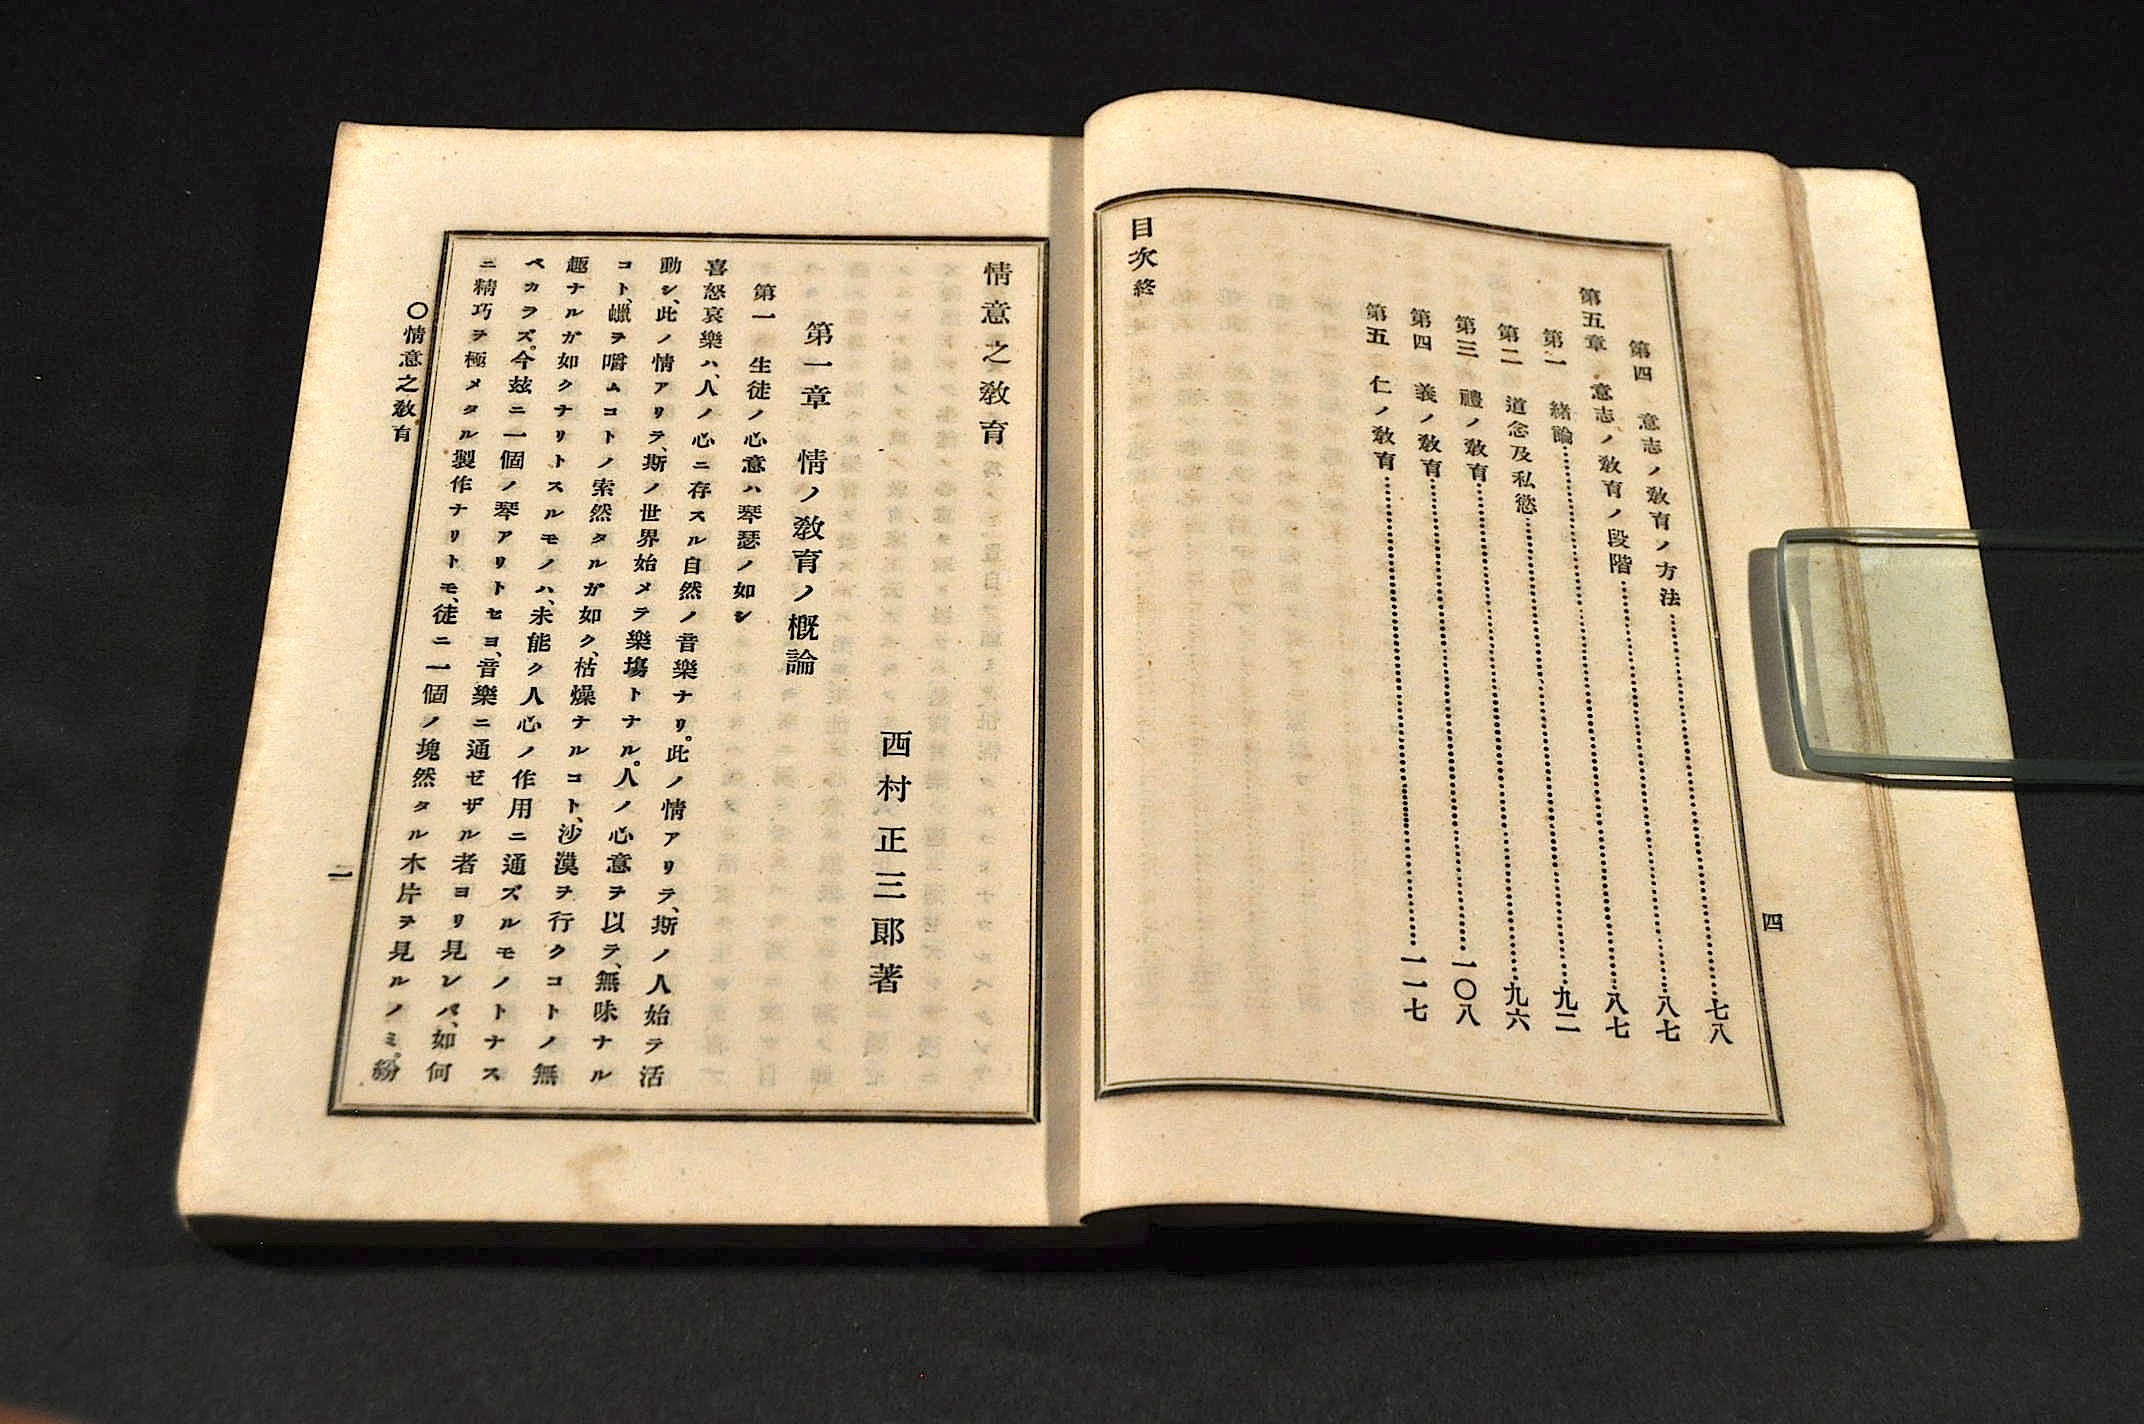 四
第四 意志ノ敎育ノ方法……七八
第五章 意志ノ敎育ノ段階……八七
第一 緒論……八七
第二 道念及私慾……九二
第三 禮ノ敎育……九六
第四 義ノ敎育……一〇八
第五 仁ノ敎育……一一七
目次終
情意之敎育
西村正三郎著
第一章 情ノ敎育ノ概論
第一 生徒ノ心意ハ琴瑟ノ如シ
喜怒哀樂ハ、人ノ心ニ存スル自然ノ音樂ナリ。此ノ情アリテ、斯ノ人始テ活
動シ、此ノ情アリテ、斯ノ世界始メテ樂塲トナル。人ノ心意ヲ以テ、無味ナル
コト、蠟ヲ嚼ムコトノ索然タルガ如ク、枯燥ナルコト、沙漠ヲ行クコトノ無
趣ナルガ如クナリトスルモノハ、未能ク人心ノ作用ニ通ズルモノトナス
ベカラズ。今玆ニ一個ノ琴アリトセヨ、音樂ニ通ゼザル者ヨリ見レバ、如何
ニ精巧ヲ極メタル製作ナリトモ、徒ニ一個ノ塊然タル木片ヲ見ルノミ。紛
〇情意之敎育
一